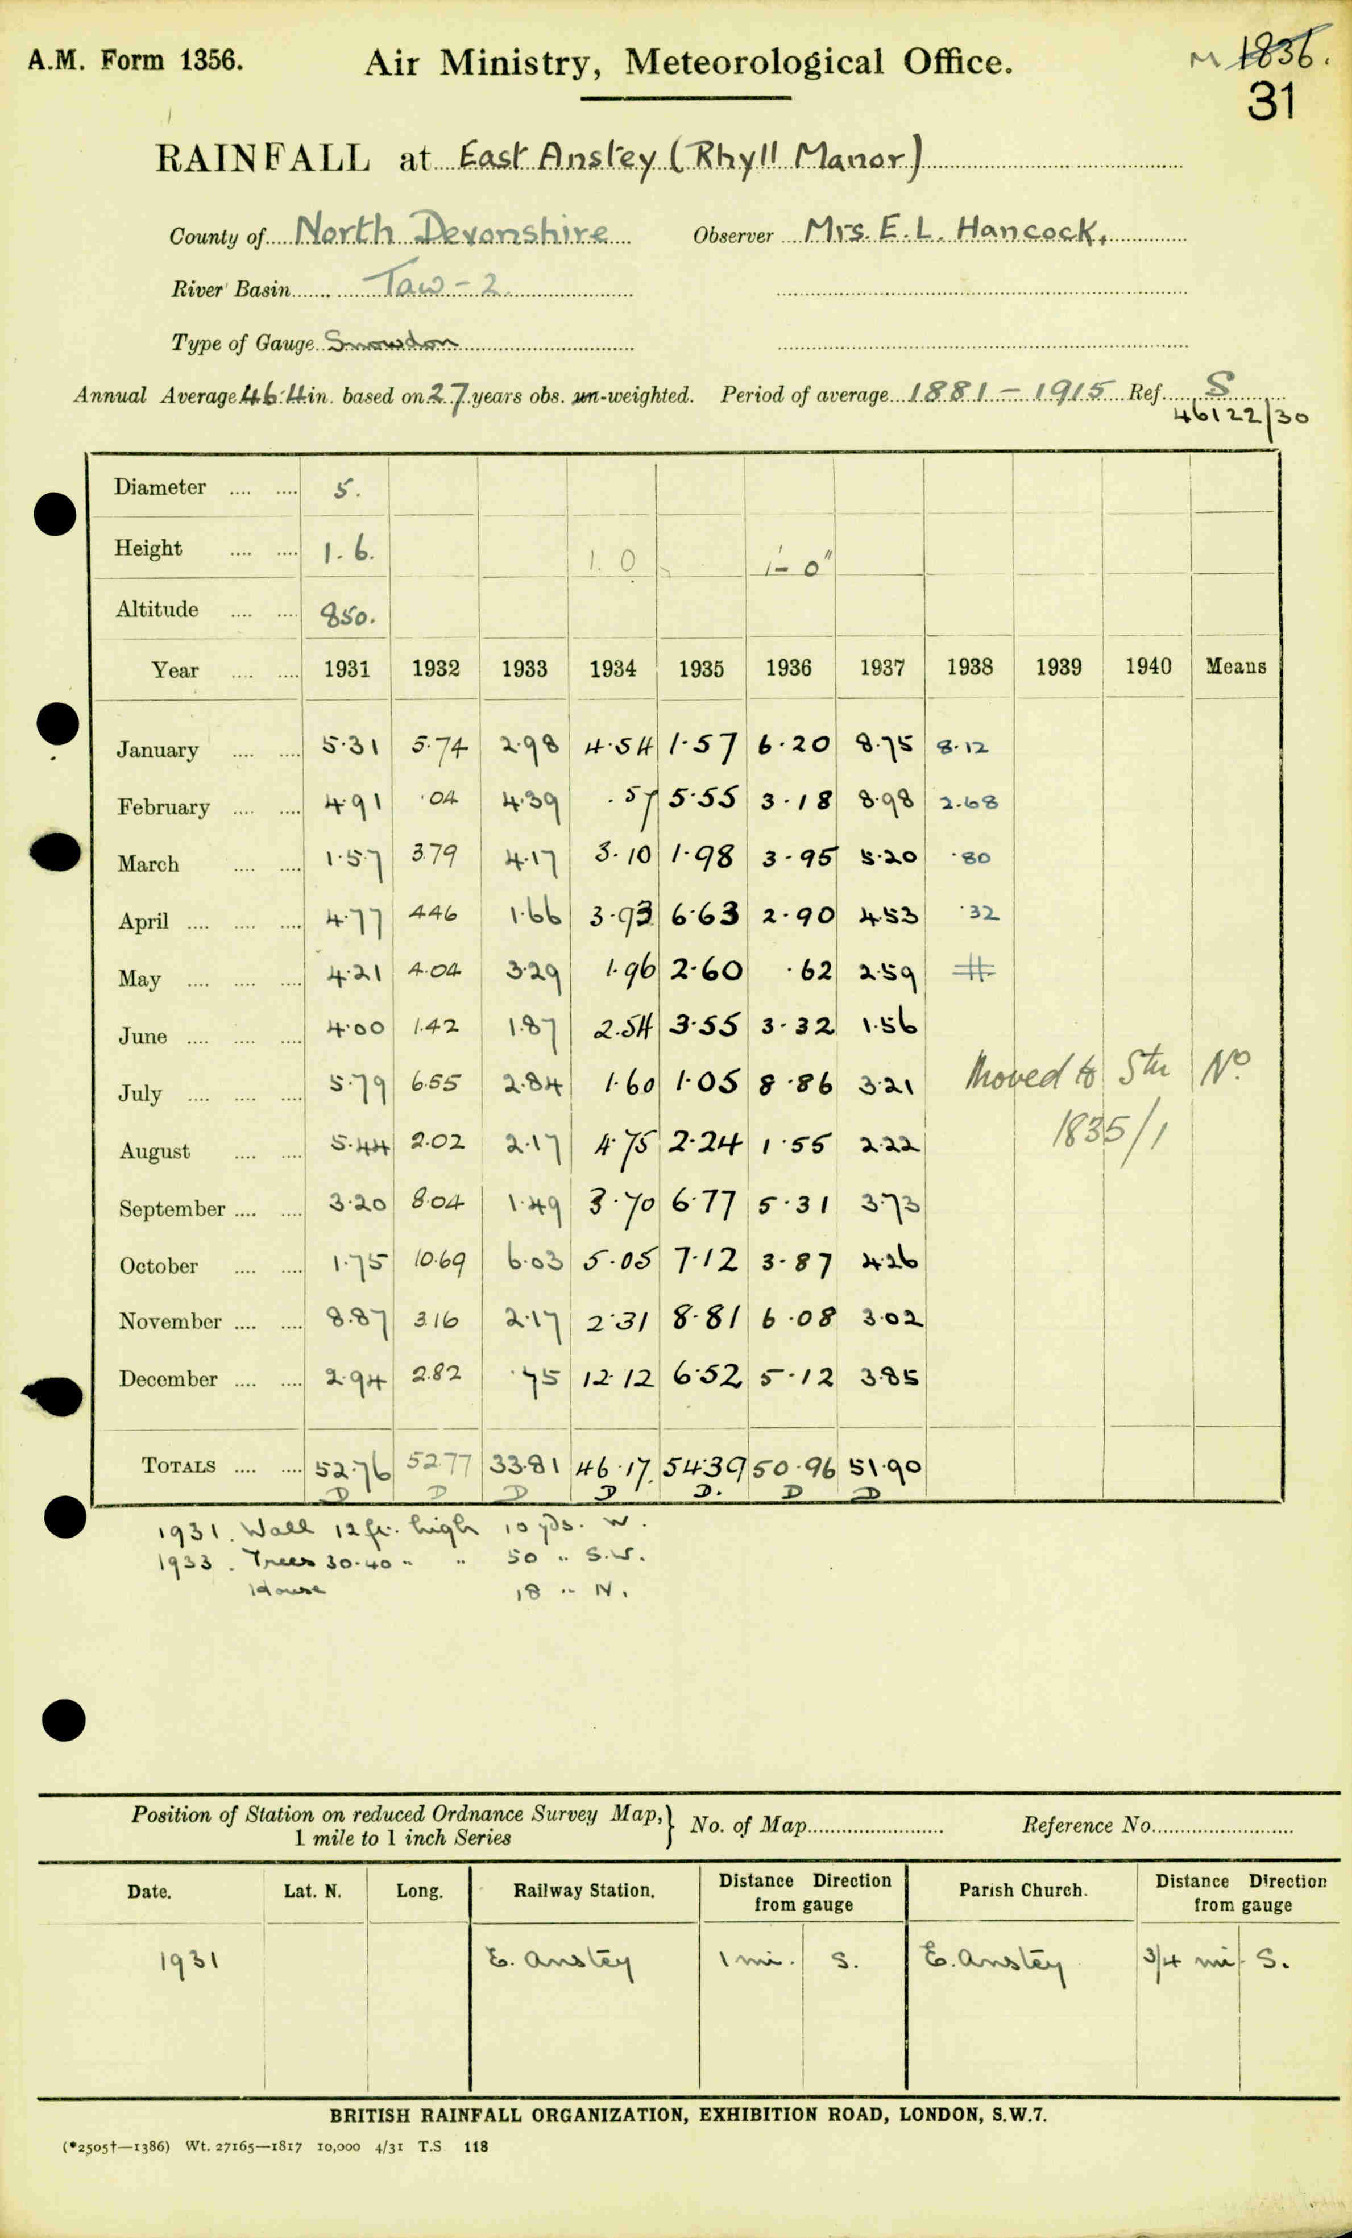 A.M. Form 1356. Air Ministry, Meteorological Office. M 1836.
31
RAINFALL at East Anstey (Rhyll Manor)
County of North Devonshire Observer Mrs. E. L. Hancock.
River Basin Taw - 2.
Type of Gauge Snowdon
Annual Average 46.4 in. based on 27 years obs. un-weighted. Period of average 1881 - 1915 Ref. S
46122/30
Diameter .... .... 5.
Height .... .... 1. 6. 1. 0 1'- 0"
Altitude .... .... 850.
Year .... .... 1931 1932 1933 1934 1935 1936 1937 1938 1939 1940 Means
January .... .... 5.31 5.74 2.98 4.54 1.57 6.20 8.75 8.12
February .... .... 4.91 .04 4.39 .57 5.55 3.18 8.98 2.68
March .... .... 1.57 3.79 4.17 3.10 1.98 3.95 5.20 .80
April .... .... .... 4.77 4.46 1.66 3.93 6.63 2.90 4.53 .32
May .... .... .... 4.21 4.04 3.29 1.96 2.60 .62 2.59
June .... .... .... 4.00 1.42 1.87 2.54 3.55 3.32 1.56
July .... .... .... 5.79 6.55 2.84 1.60 1.05 8.86 3.21 Moved to Stn No.
August .... .... 5.44 2.02 2.17 4.75 2.24 1.55 2.22 1835/1
September .... .... 3.20 8.04 1.49 3.70 6.77 5.31 3.73
October .... .... 1.75 10.69 6.03 5.05 7.12 3.87 4.26
November .... .... 8.87 3.16 2.17 2.31 8.81 6.08 3.02
December .... .... 2.94 2.82 .75 12.12 6.52 5.12 3.85
TOTALS .... .... 52.76 52.77 33.81 46.17 54.39 50.96 51.90
D D D D D. D D
1931. Wall 12 ft. high 10 yds. W.
1933. Trees 30-40 " " 50 " S.W.
House 18 " N.
Position of Station on reduced Ordnance Survey Map, } No. of Map Reference No.
1 mile to 1 inch Series
Date. Lat. N. Long. Railway Station. Distance Direction from gauge Parish Church. Distance Direction from gauge
1931 E. Anstey 1 mi. S. E. Anstey 3/4 mi. S.
BRITISH RAINFALL ORGANIZATION, EXHIBITION ROAD, LONDON, S.W.7.
(*2505†—1386) Wt. 27165—1817 10,000 4/31 T.S 118